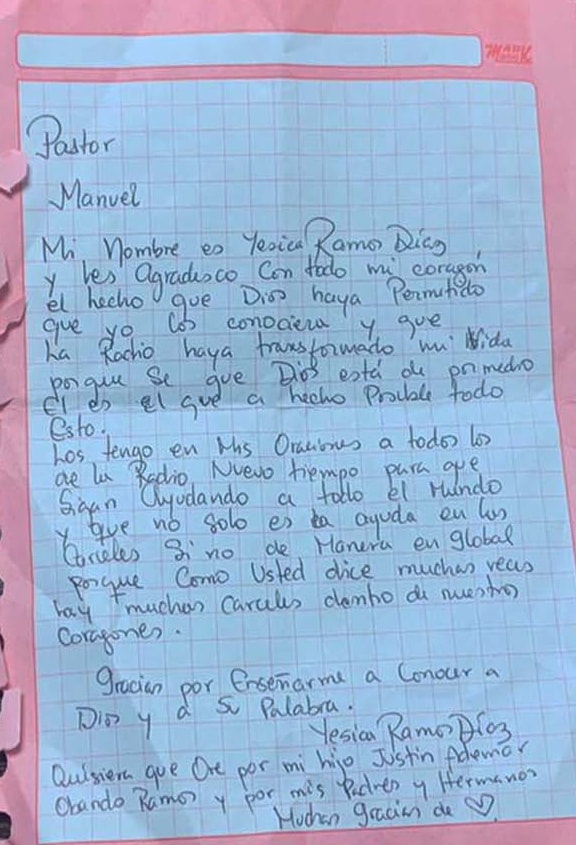 Pastor
Manuel
Mi Nombre es Yesica Ramos Díaz
y les Agradesco Con todo mi corazón
el hecho que Dios haya Permitido
que yo los conociera y que
La Radio haya transformado mi Vida
porque Se que Dios está de por medio
El es el que a hecho Posible todo
Esto.
Los tengo en Mis Oraciones a todos los
de la Radio Nuevo tiempo para que
Sigan Ayudando a todo el Mundo
y que no solo es la ayuda en las
Carceles Si no de Manera en global
porque Como Usted dice muchas veces
hay muchas Carceles dentro de nuestros
Corazones.
Gracias por Enseñarme a Conocer a
Dios y a Su Palabra.
Yesica Ramos Díaz
Quisiera que Ore por mi hijo Justin Ademar
Obando Ramos y por mis Padres y Hermanos
Muchas gracias de